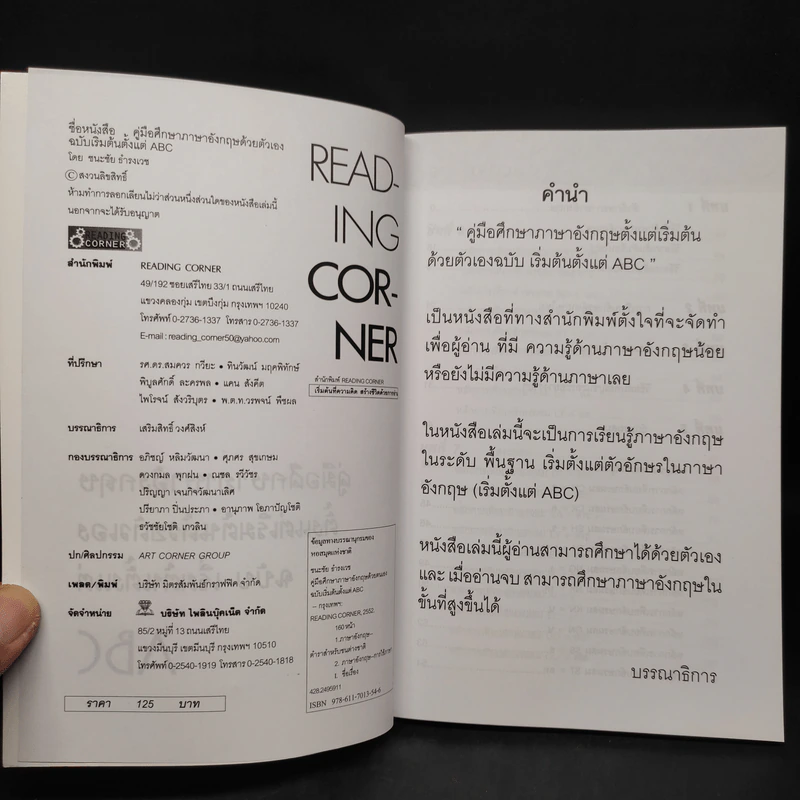 ชื่อหนังสือ คู่มือศึกษาภาษาอังกฤษด้วยตัวเอง
ฉบับเริ่มต้นตั้งแต่ ABC
โดย ชนะชัย ธำรงเวช
© สงวนลิขสิทธิ์
ห้ามทำการลอกเลียนไม่ว่าส่วนหนึ่งส่วนใดของหนังสือเล่มนี้
นอกจากจะได้รับอนุญาต
READING
CORNER
สำนักพิมพ์ READING CORNER
49/192 ซอยเสรีไทย 33/1 ถนนเสรีไทย
แขวงคลองกุ่ม เขตบึงกุ่ม กรุงเทพฯ 10240
โทรศัพท์ 0-2736-1337 โทรสาร 0-2736-1337
E-mail : reading_corner50@yahoo.com
ที่ปรึกษา รศ.ดร.สมควร กวียะ • ทินวัฒน์ มฤคพิทักษ์
พิบูลศักดิ์ ละครพล • แคน สังคีต
ไพโรจน์ สังวริบุตร • พ.ต.ท.วรพจน์ พืชผล
บรรณาธิการ เสริมสิทธิ์ วงศ์สิงห์
กองบรรณาธิการ อภิชญ์ หลิมวัฒนา • ศุภศร สุขเกษม
ดวงกมล พุกผ่น • ณชล รวีวัชร
ปริญญา เจนกิจวัฒนาเลิศ
ปรียาภา ปิ่นประภา • อานุภาพ โอภาปัญโชติ
ธวัชชัยโชติ เกวลิน
ปก/ศิลปกรรม ART CORNER GROUP
เพลต/พิมพ์ บริษัท มิตรสัมพันธ์กราฟฟิค จำกัด
จัดจำหน่าย บริษัท ไพลินบุ๊คเน็ต จำกัด
85/2 หมู่ที่ 13 ถนนเสรีไทย
แขวงมีนบุรี เขตมีนบุรี กรุงเทพฯ 10510
โทรศัพท์ 0-2540-1919 โทรสาร 0-2540-1818
ราคา 125 บาท
READ-
ING
COR-
NER
สำนักพิมพ์ READING CORNER
เริ่มต้นที่ความคิด สร้างชีวิตด้วยการอ่าน
ข้อมูลทางบรรณานุกรมของ
หอสมุดแห่งชาติ
ชนะชัย ธำรงเวช
คู่มือศึกษาภาษาอังกฤษด้วยตนเอง
ฉบับเริ่มต้นตั้งแต่ ABC
-- กรุงเทพฯ:
READING CORNER, 2552
160 หน้า
1.ภาษาอังกฤษ--
ตำราสำหรับชนต่างชาติ
2. ภาษาอังกฤษ--การใช้ภาษา
I. ชื่อเรื่อง
428.2495911
ISBN 978-611-7013-54-6
คำนำ
" คู่มือศึกษาภาษาอังกฤษตั้งแต่เริ่มต้น
ด้วยตัวเองฉบับ เริ่มต้นตั้งแต่ ABC "
เป็นหนังสือที่ทางสำนักพิมพ์ตั้งใจที่จะจัดทำ
เพื่อผู้อ่าน ที่มี ความรู้ด้านภาษาอังกฤษน้อย
หรือยังไม่มีความรู้ด้านภาษาเลย
ในหนังสือเล่มนี้จะเป็นการเรียนรู้ภาษาอังกฤษ
ในระดับ พื้นฐาน เริ่มตั้งแต่ตัวอักษรในภาษา
อังกฤษ (เริ่มตั้งแต่ ABC)
หนังสือเล่มนี้ผู้อ่านสามารถศึกษาได้ด้วยตัวเอง
และ เมื่ออ่านจบ สามารถศึกษาภาษาอังกฤษใน
ขั้นที่สูงขึ้นได้
บรรณาธิการ